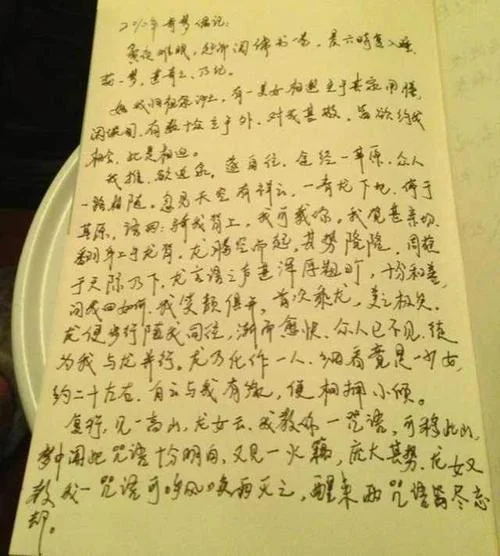 2012年奇梦偶记:
夜难眠,起而阅佛书一卷,晨六时复入睡
萌一梦,甚奇之,乃记。
始我归祖宗,有一美女相迎主于古宗用膳
闻说间,有数十众立于外,对我甚敬,皆欲约我
相会,此是相迎。
我推,欲速去。遂自往,全经一草原,众人
一路相随。忽见天空有祥云,一青龙下地,停于
草原,语曰:骑我背上,我可载你。我觉甚亲切
翻身上于龙背,龙腾空而起,其势隆隆,周旋
于天际乃下,龙言语之声甚浑厚粗旷,十分和善
问我曰如何,我笑颜俱开,首次乘龙,美之极矣。
龙便步行随我同往,渐而愈快,众人已不见,续
为我与龙并行。龙乃化作一人,细看竟是一少女
约二十左右,自云与我有缘,便相拥小倾。
复行,见一高山,龙女云,我教你一咒语,可移此山,
梦中闻此咒语十分明白,又见一火,庞大其势,龙女又
教我一咒语可呼风唤雨灭之,醒来两咒语皆尽忘
却。